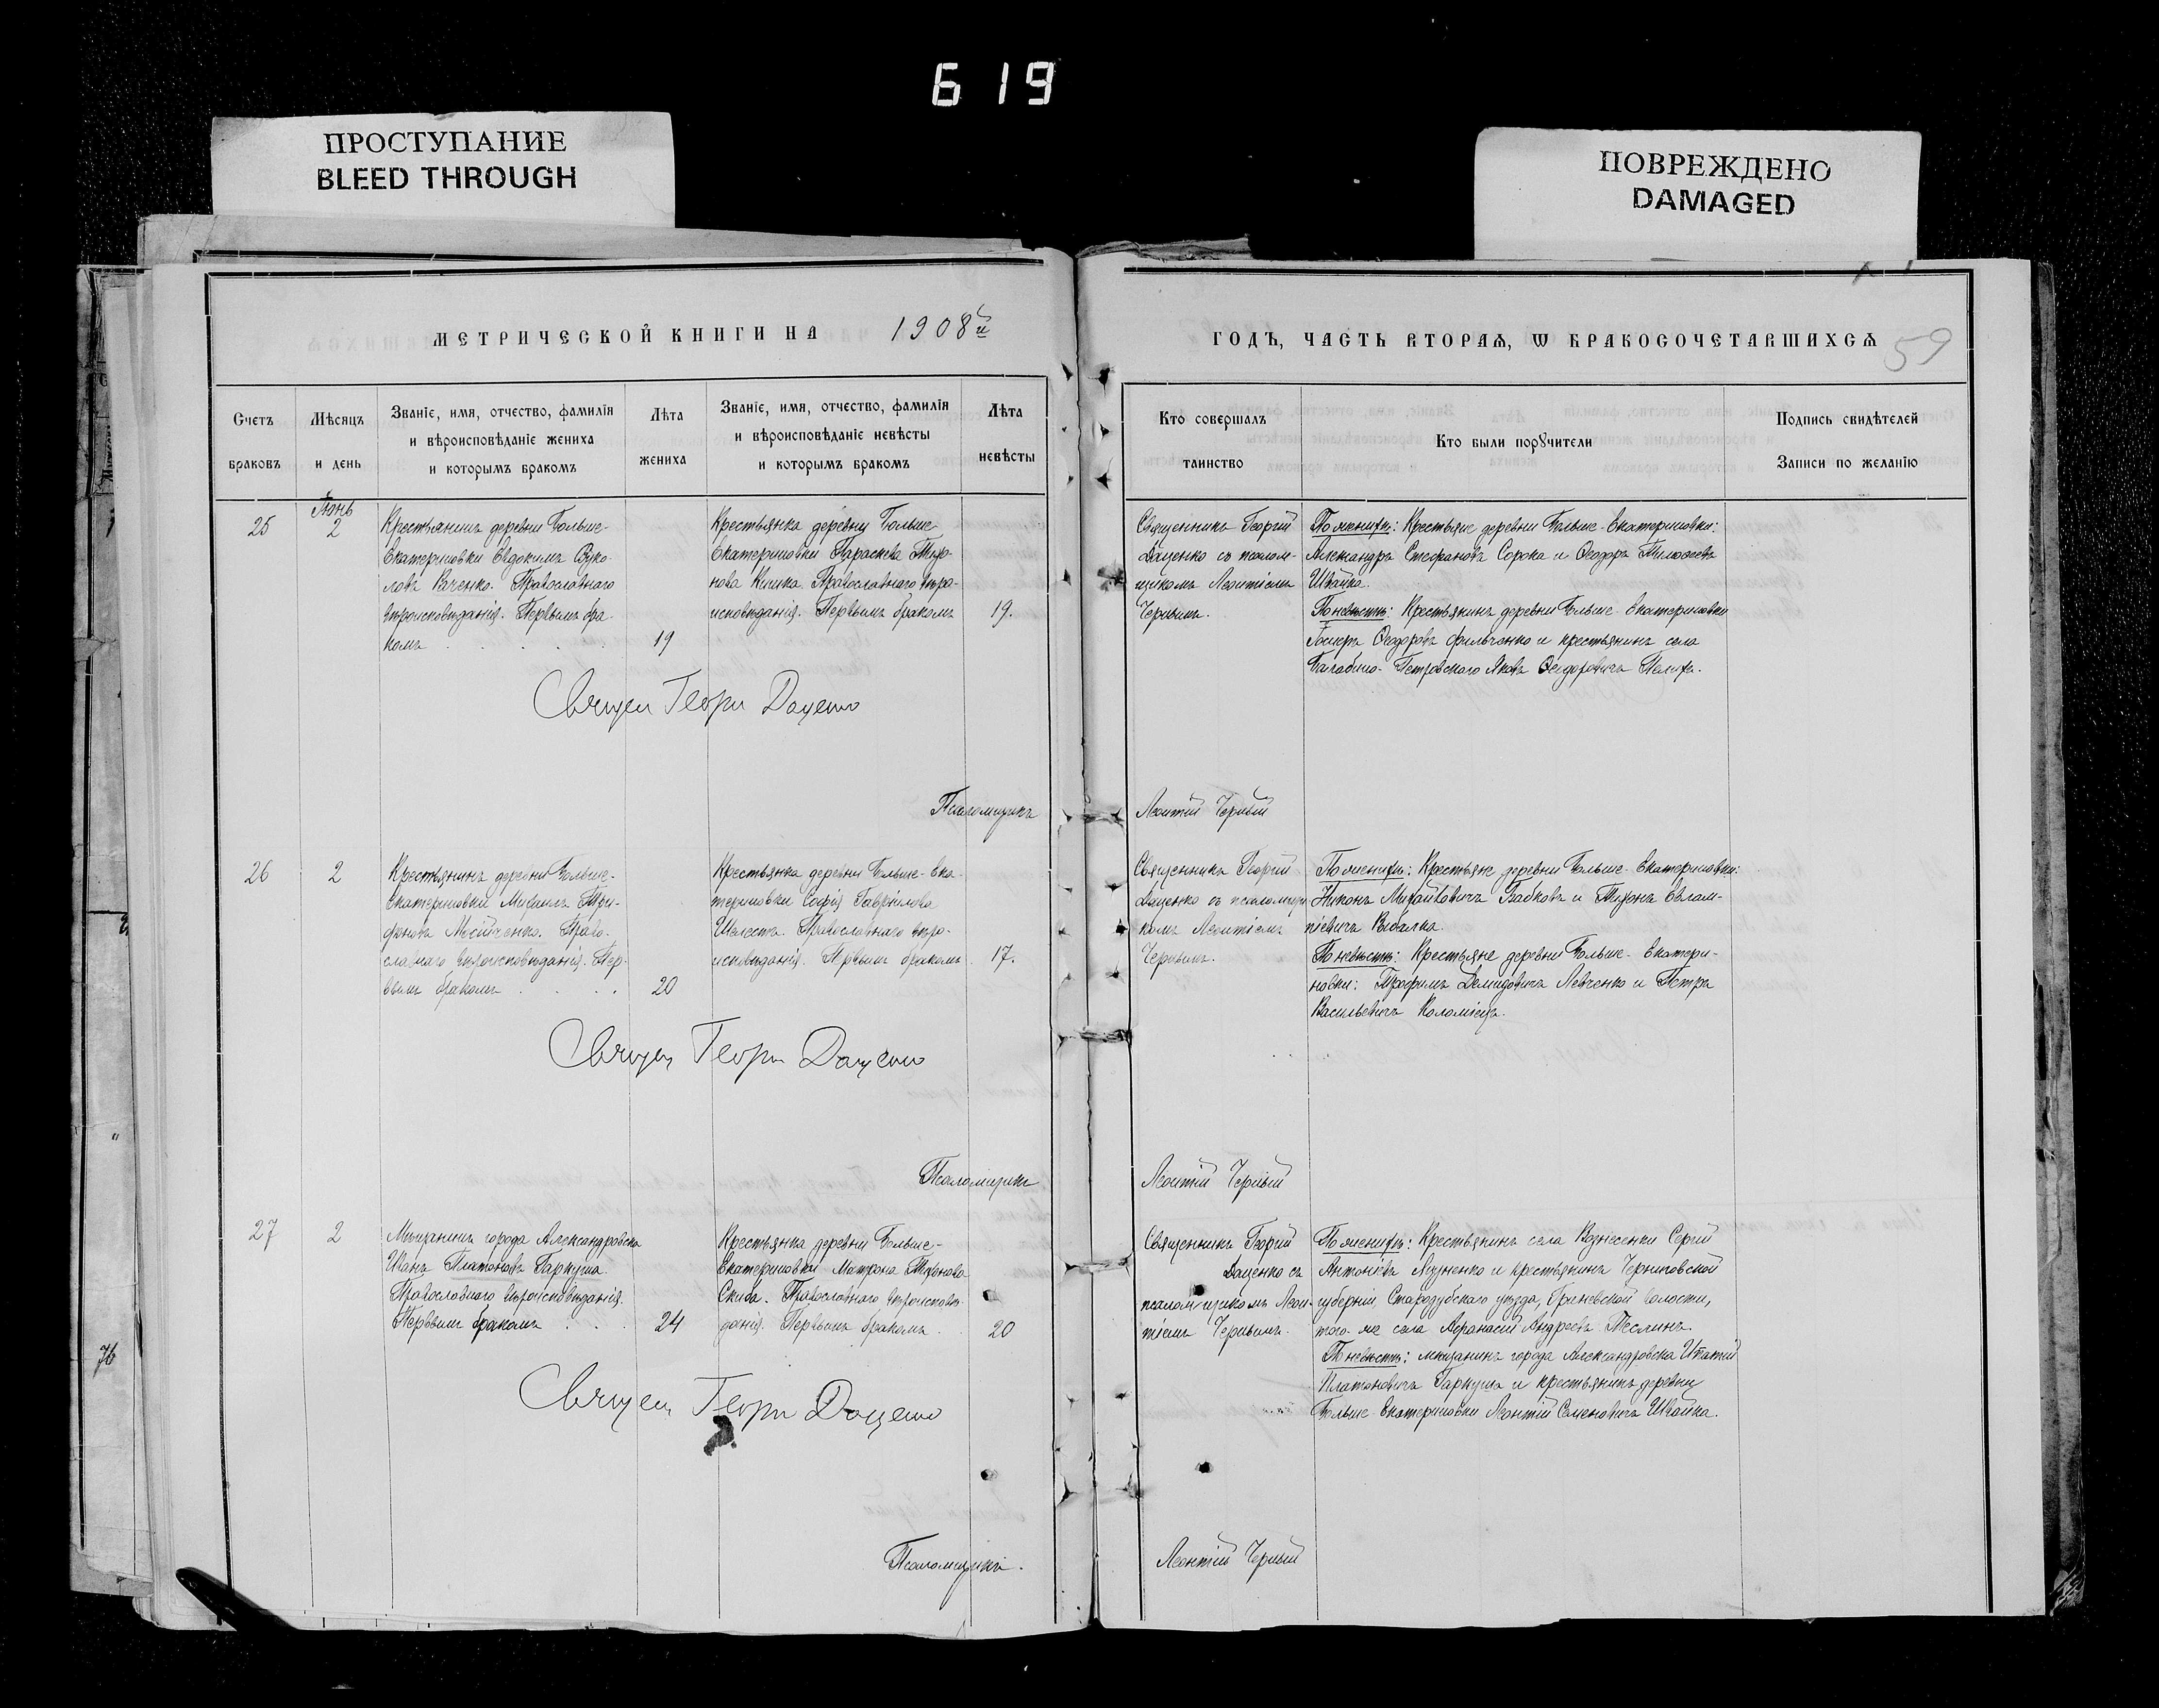 619
ПРОСТУПАНИЕ
BLEED THROUGH
ПОВРЕЖДЕНО
DAMAGED
МЕТРИЧЕСКОЙ КНИГИ НА 1908й
ГОДЪ, ЧАСТЬ ВТОРАѦ, Ѡ БРАКОСОЧЕТАВШИХСѦ
59
Счетъ браковъ
Мѣсяцъ и день
Званіе, имя, отчество, фамилія
и вѣроисповѣданіе жениха
и которымъ бракомъ
Лѣта жениха
Званіе, имя, отчество, фамилія
и вѣроисповѣданіе невѣсты
и которымъ бракомъ
Лѣта невѣсты
Кто совершалъ таинство
Кто были порꙋчители
Подпись свидѣтелей
Записи по желанію
25
Іюнь
2
Крестьянинъ деревни Больше-
Екатериновки Евдокимъ
Православнаго
вѣроисповѣданія. Первымъ бра-
комъ
19
Крестьянка деревни Больше-
Екатериновки Параскева Тихо-
нова Кишка. Православнаго вѣро-
исповѣданія. Первымъ бракомъ
19.
Священникъ Георгій
Даценко съ псалом-
щикомъ Леонтіемъ
Чернымъ.
По женихѣ: Крестьяне деревни Больше-Екатериновки:
Александръ Стефановъ Сорока и Ѳеодоръ
Швайка.
По невѣстѣ: Крестьянинъ деревни Больше-Екатериновки
Ѳеодоровъ Фильченко и крестьянинъ села
Балабино-Петровского Яковъ Ѳеодоровичъ
Священ Георгій Даценко
Псаломщикъ Леонтій Черный
26
2
Крестьянинъ деревни Больше-
Екатериновки Михаилъ Три-
фоновъ Мосійченко. Право-
славнаго вѣроисповѣданія. Пер-
вымъ бракомъ
20
Крестьянка деревни Больше-Ека-
териновки Софія Гавріилова
Шелестъ. Православнаго вѣро-
исповѣданія. Первымъ бракомъ
17.
Священникъ Георгій
Даценко съ псаломщи-
комъ Леонтіемъ
Чернымъ.
По женихѣ: Крестьяне деревни Больше-Екатериновки:
Никонъ Михайловичъ Бабковъ и Тихонъ Евлам-
піевичъ
По невѣстѣ: Крестьяне деревни Больше-Екатери-
новки: Трофимъ Демидовичъ Левченко и Петръ
Васильевичъ Коломіецъ.
Священ Георгій Даценко
Псаломщикъ Леонтій Черный
27
2
Мѣщанинъ города Александровска
Иванъ Платоновъ Гаркуша.
Православнаго вѣроисповѣданія.
Первымъ бракомъ
24
Крестьянка деревни Больше-
Екатериновки Матрона Тихонова
Скиба. Православнаго вѣроисповѣ-
данія. Первымъ бракомъ.
20
Священникъ Георгій
Даценко съ
псаломщикомъ Леон-
тіемъ Чернымъ.
По женихѣ: Крестьянинъ села Вознесенки Сергій
Антоніевъ и крестьянинъ Черниговской
губерніи, Стародубскаго уѣзда, волости,
того-же села Афанасій Андреевъ Теслинъ.
По невѣстѣ: мѣщанинъ города Александровска Игнатій
Платоновичъ Гаркуша и крестьянинъ деревни
Больше-Екатериновки Леонтій Семеновичъ Швайка.
Священ Георгій Даценко
Псаломщикъ. Леонтій Черный
76